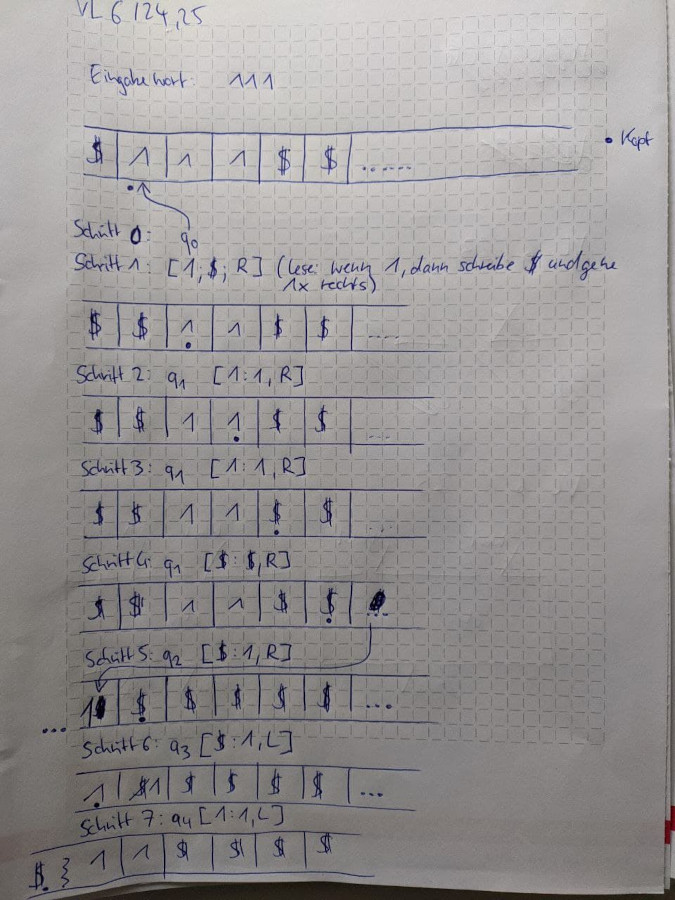 VL 6 124,25
Eingabewort: 111
$ 1 1 1 $ $ ......
• Kopf
Schritt 0: q0
Schritt 1: [1; $; R] (lese: wenn 1, dann schreibe $ und gehe
1x rechts)
$ $ 1 1 $ $ ....
Schritt 2: q1 [1:1, R]
$ $ 1 1 $ $ ...
Schritt 3: q1 [1:1, R]
$ $ 1 1 $ $ ...
Schritt 4: q1 [$:$, R]
$ $ 1 1 $ $ ...
Schritt 5: q2 [$:1, R]
... 1 $ $ $ $ $ ...
Schritt 6: q3 [$:1, L]
1 $1 $ $ $ $ ...
Schritt 7: q4 [1:1, L]
$ } 1 1 $ $ $ $